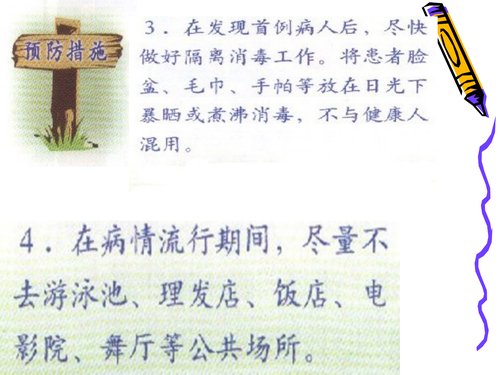 预防措施
3．在发现首例病人后，尽快
做好隔离消毒工作。将患者脸
盆、毛巾、手帕等放在日光下
暴晒或煮沸消毒，不与健康人
混用。
4．在病情流行期间，尽量不
去游泳池、理发店、饭店、电
影院、舞厅等公共场所。